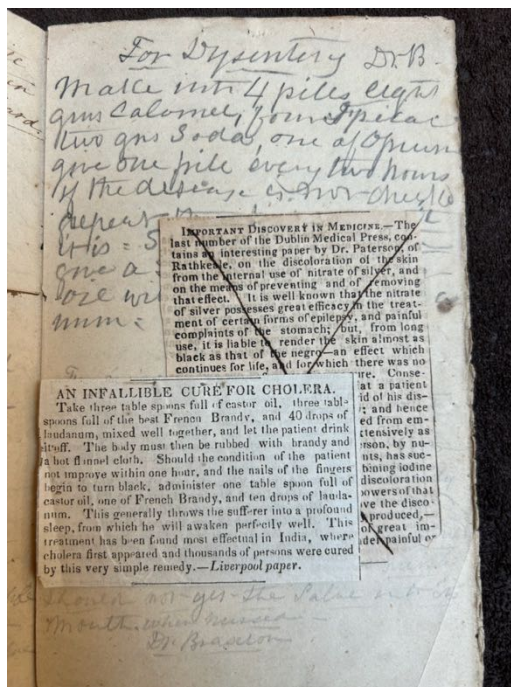 For Dysentery Dr. B-
Make into 4 piles eight
grns Calomel, four Ipicac
two grns Soda, one of Opium
give one pile every two hours
if the disease is not check
repeat
it is =
give a
IMPORTANT DISCOVERY IN MEDICINE.—The
last number of the Dublin Medical Press, con-
tains an interesting paper by Dr. Paterson, of
Rathkeale, on the discoloration of the skin
from the internal use of nitrate of silver, and
on the means of preventing and of removing
that effect. It is well known that the nitrate
of silver possesses great efficacy in the treat-
ment of certain forms of epilepsy, and painful
complaints of the stomach; but, from long
use, it is liable to render the skin almost as
black as that of the negro—an effect which
continues for life, and for which there was no
ure. Conse-
at a patient
id of his dis-
; and hence
ed from em-
tensively as
son, by nu-
nts, has suc-
bining iodine
discoloration
powers of that
ve the disco-
produced,—
of great im-
der painful or
AN INFALLIBLE CURE FOR CHOLERA.
Take three table spoons full of castor oil, three table
spoons full of the best French Brandy, and 40 drops of
laudanum, mixed well together, and let the patient drink
it off. The body must then be rubbed with brandy and
a hot flannel cloth. Should the condition of the patient
not improve within one hour, and the nails of the fingers
begin to turn black, administer one table spoon full of
castor oil, one of French Brandy, and ten drops of lauda-
num. This generally throws the sufferer into a profound
sleep, from which he will awaken perfectly well. This
treatment has been found most effectual in India, where
cholera first appeared and thousands of persons were cured
by this very simple remedy.—Liverpool paper.
should not get the Salve into
mouth when nursed